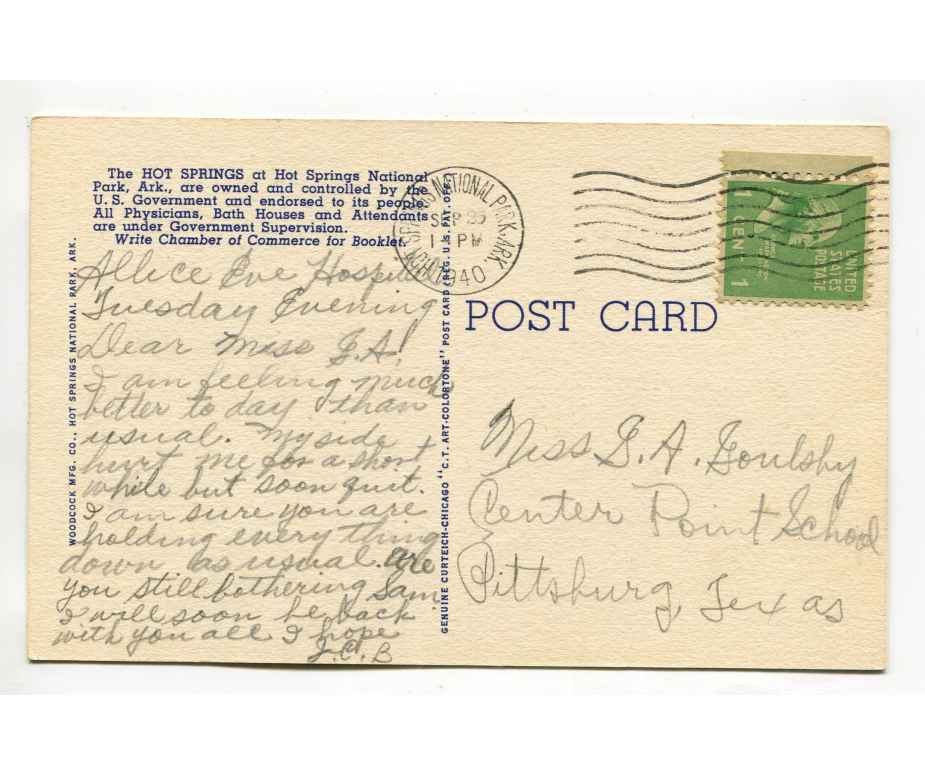 The HOT SPRINGS at Hot Springs National
Park, Ark., are owned and controlled by the
U. S. Government and endorsed to its people.
All Physicians, Bath Houses and Attendants
are under Government Supervision.
Write Chamber of Commerce for Booklet.
Allice Eve Hospital
Tuesday Evening
Dear Miss G.A.
I am feeling much
better to day than
usual. My side
hurt me for a short
while but soon quit.
I am sure you are
holding everything
down as usual. are
you still bothering Sam.
I will soon be back
with you all I hope
J.C.B
WOODCOCK MFG. CO., HOT SPRINGS NATIONAL PARK, ARK.
GENUINE CURTEICH-CHICAGO "C.T. ART-COLORTONE" POST CARD (REG. U.S. PAT. OFF.)
HOT SPRINGS NATIONAL PARK, ARK.
SEP
PM
1940
1 CENT 1
UNITED
STATES
POSTAGE
POST CARD
Miss G. A. Goulsby
Center Point School
Pittsburg, Texas